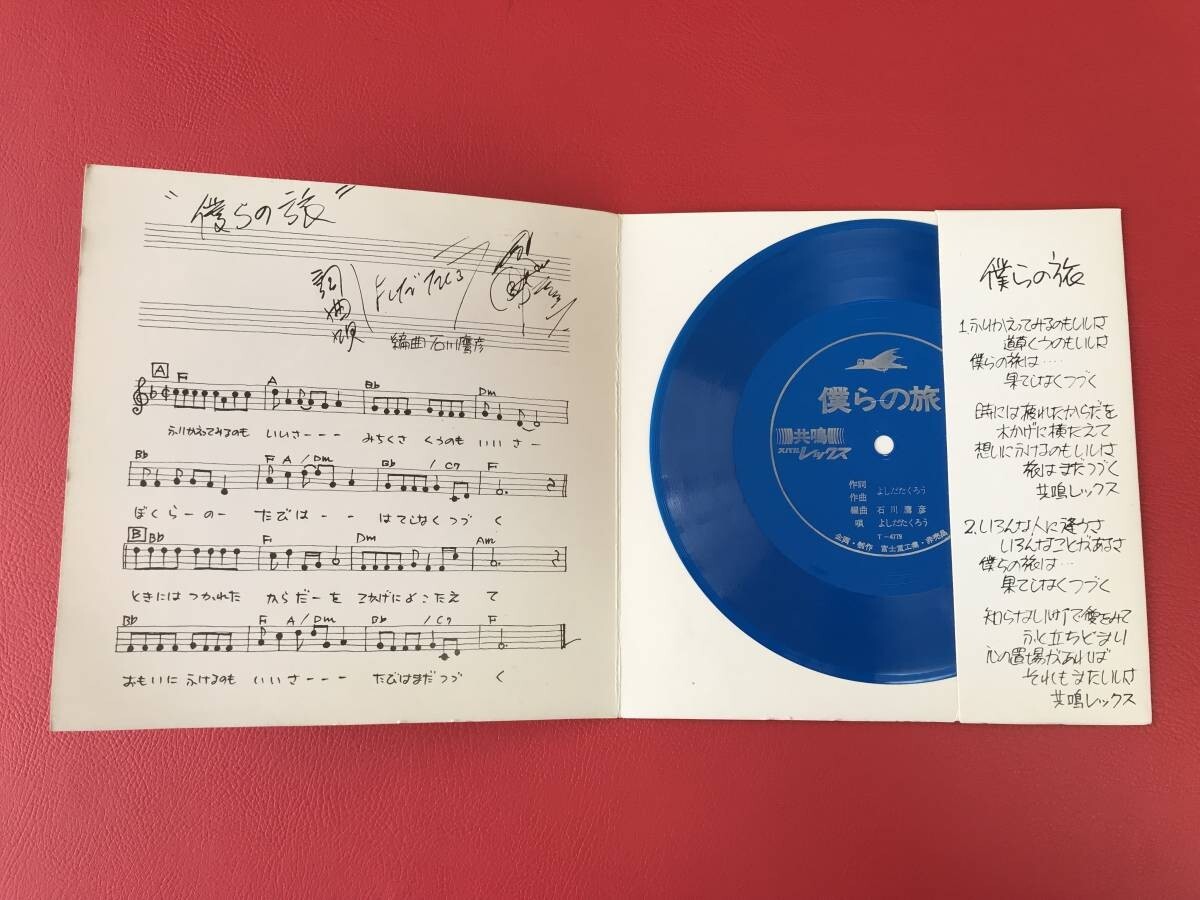 "僕らの旅"
詞
曲
唄
よしだたくろう
編曲 石川鷹彦
A
F A Bb Dm
ふりかえってみるのも いいさ--- みちくさ くうのも いいさー
Bb F A/Dm Bb /C7 F
ぼくらーのー たびは--- はてしなくつづ く
B
Bb F Dm Am
ときには つかれた からだーを こかげによこたえ て
Bb F A/Dm Bb /C7 F
おもいに ふけるのも いいさ---- たびはまだつづ く
僕らの旅
共鳴
スバル レックス
作詞
作曲 よしだたくろう
編曲 石川鷹彦
唄 よしだたくろう
T-4779
企画・制作 富士重工業・非売品
僕らの旅
1.ふりかえってみるのもいいさ
道草くうのもいいさ
僕らの旅は‥‥
果てしなくつづく
時には疲れたからだを
木かげに横たえて
想いにふけるのもいいさ
旅はまだつづく
共鳴レックス
2.いろんな人に逢うさ
いろんなことがあるさ
僕らの旅は‥‥
果てしなくつづく
知らない町で愛をみて
ふと立ちどまり
心の置場があれば
それもまたいいさ
共鳴レックス